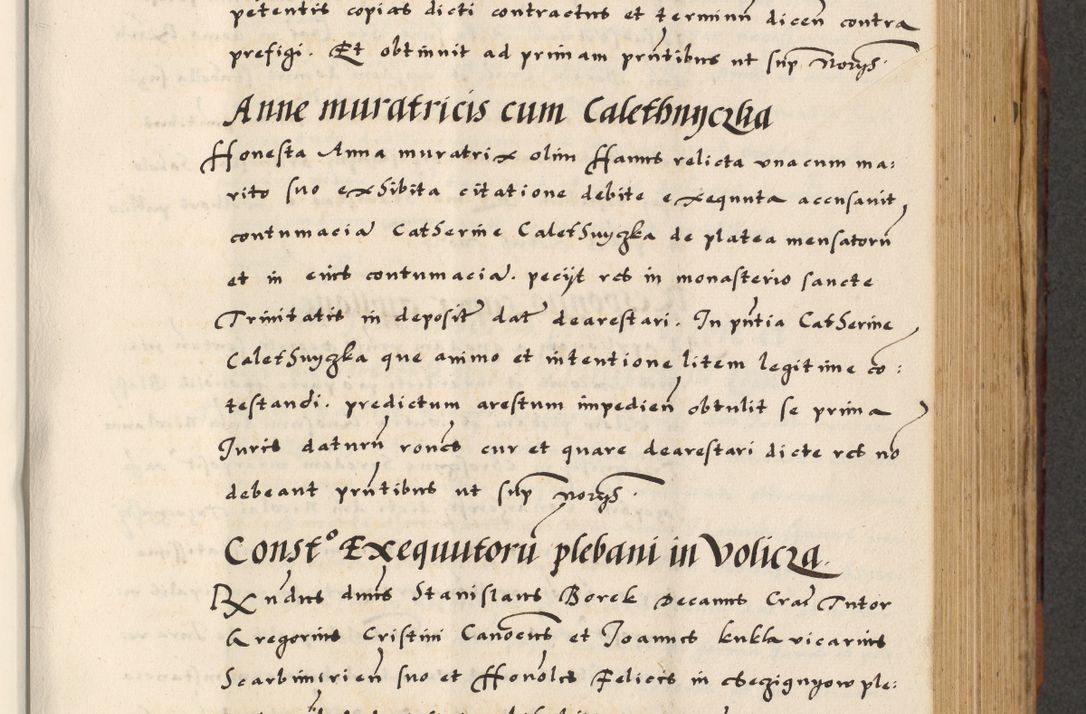 petentis copias dicti contractus et terminū diceñ contra
prefigi. Et obtinuit ad primam pñtibus ut sup Norys.
Anne muratricis cum Calethnyczka
Honesta Anna muratrix olim Hanus relicta vna cum ma:
rito suo exhibita citatione debite exequuta accusauit
contumaciā Catherine Calethnyczka de platea mensatorū
et in eius contumaciā. pecijt res in monasterio sancte
Trinitatis in deposit dat dearestari. In pñtia Catherine
Calethnyczka que animo et intentione litem legitime cō:
testandi. predictum arestum impedieñ obtulit se prima
Juris daturū roñes cur et quare dearestari dicte res nō
debeant pñtibus ut sup norys.
Constᵒ Exequutorū plebani in Volicza.
Rxndus dñus Stanislaus Borek Decanus Craĉ Tutor
Gregorius Cristini Canoeus et Joannes kukla vicarius
Scarbimirieñ suo et Honōlis Felicis in Chezignyow ple: